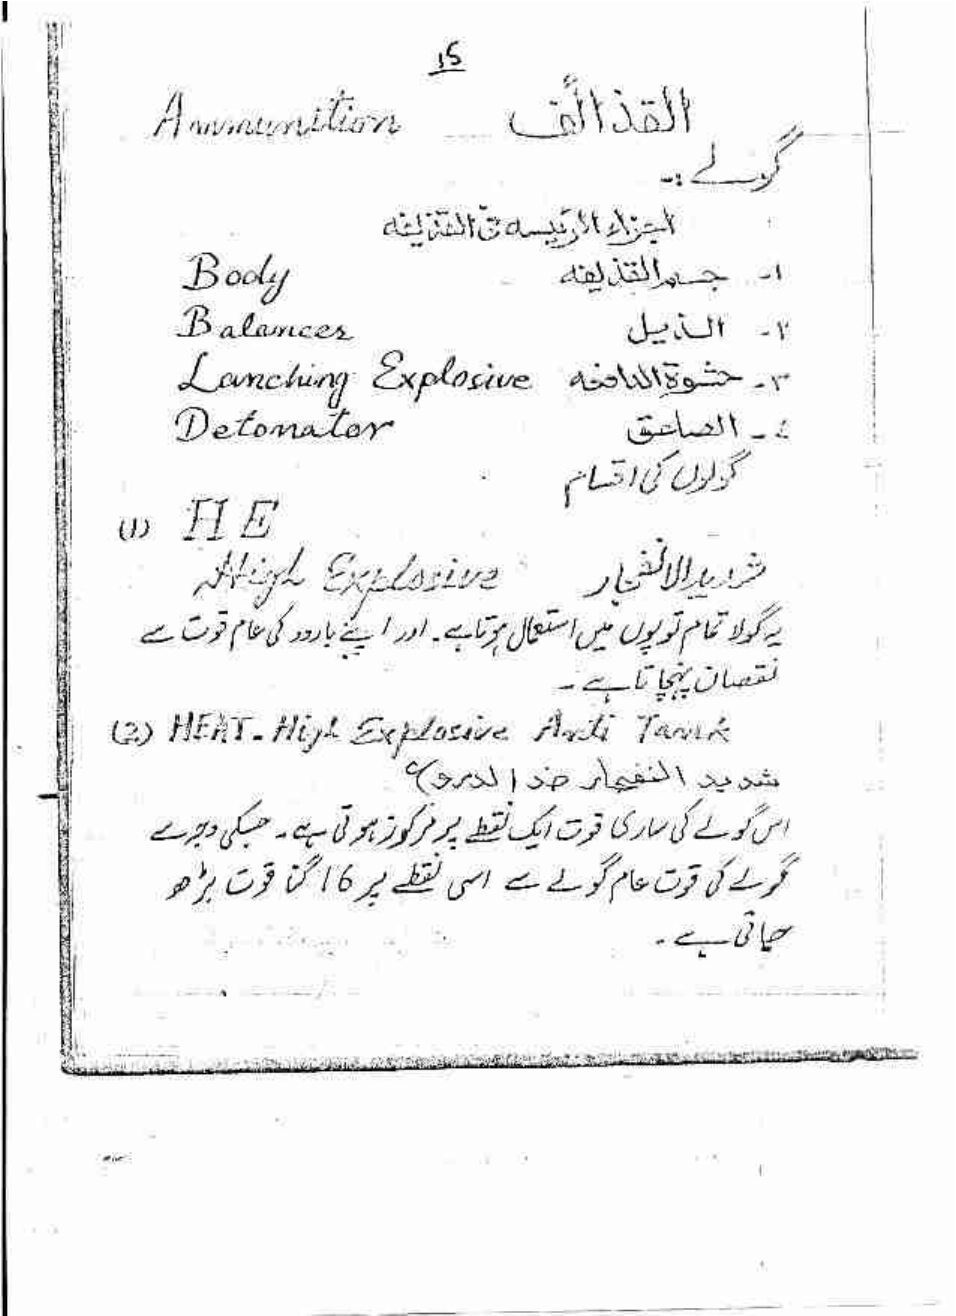 15
Ammunition القذائف
گولے :-
اجزاء الرئيسه في القذيفه
Body ١- جسم القذيفه
Balancer ٢- الذيل
Lanching Explosive ٣- حشوة الدافعه
Detonator ٤- الصاعق
گولوں کی اقسام
(1) HE
High Explosive شديد الانفجار
یہ گولا تمام توپوں میں استعمال ہوتا ہے۔ اور اپنے بارود کی عام قوت سے
نقصان پہنچاتا ہے۔
(2) HEAT - High Explosive Anti Tank
شديد النفجار ضد الدروع
اس گولے کی ساری قوت ایک نقطے پر مرکوز ہوتی ہے۔ جسکی وجہ سے
گولے کی قوت عام گولے سے اسی نقطے پر 16 گنا قوت بڑھ
جاتی ہے۔